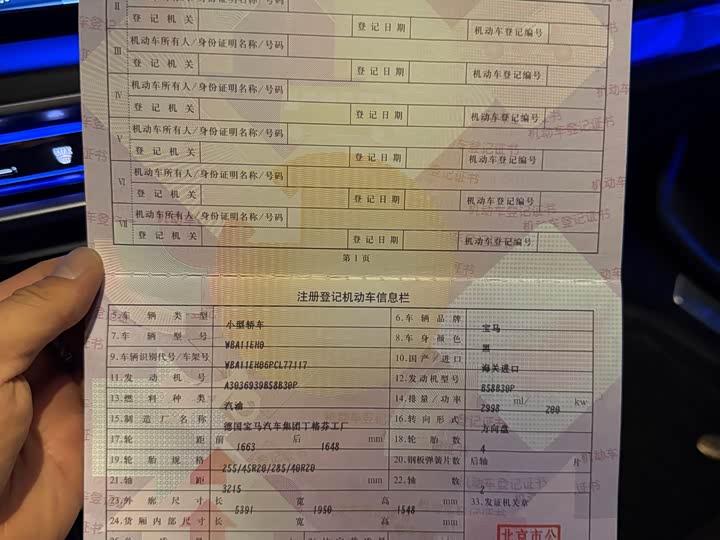 机动车所有人/身份证明名称/号码
II
登记机关 登记日期 机动车登记编号
III
机动车所有人/身份证明名称/号码
登记机关 登记日期 机动车登记编号
IV
机动车所有人/身份证明名称/号码
登记机关 登记日期 机动车登记编号
V
机动车所有人/身份证明名称/号码
登记机关 登记日期 机动车登记编号
VI
机动车所有人/身份证明名称/号码
登记机关 登记日期 机动车登记编号
VII
机动车所有人/身份证明名称/号码
登记机关 登记日期 机动车登记编号
第1页
注册登记机动车信息栏
5.车辆类型 小型轿车 6.车辆品牌 宝马
7.车辆型号 WBA11EH0 8.车身颜色 黑
9.车辆识别代号/车架号 WBA11EH06PCL77117 10.国产/进口 海关进口
11.发动机号 A3036939B58B30P 12.发动机型号 B58B30P
13.燃料种类 汽油 14.排量/功率 2998 ml/ 200 kw
15.制造厂名称 德国宝马汽车集团丁格芬工厂 16.转向形式 方向盘
17.轮距 前 1663 后 1648 mm 18.轮胎数 4
19.轮胎规格 255/45R20/285/40R20 20.钢板弹簧片数 后轴 片
21.轴距 3215 mm 22.轴数 2
23.外廓尺寸 长 5391 宽 1950 高 1548 mm 33.发证机关章
24.货厢内部尺寸 长 宽 高 mm
北京市公